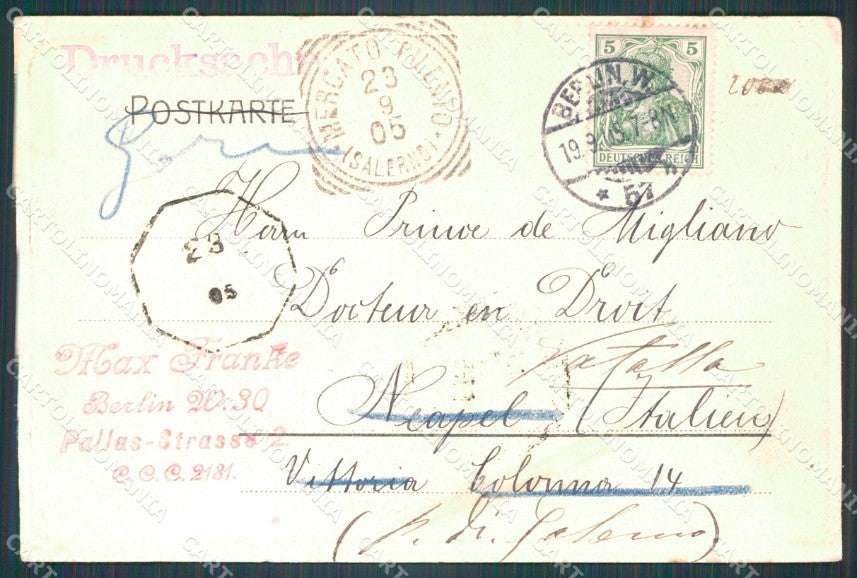 Drucksache
POSTKARTE
MERCATO
23
9
05
(SALERNO)
BERLIN. W.
19.9.05. 7-8N
* 57
5 5
DEUTSCHES REICH
23
05
Herrn Prince de Migliano
Docteur en Droit
Neapel (Italien)
Vittoria Colonna 14
Max Franke
Berlin W. 30
Pallas-Strasse 2
C.C.C. 2181.
CARTOLINOMANIA